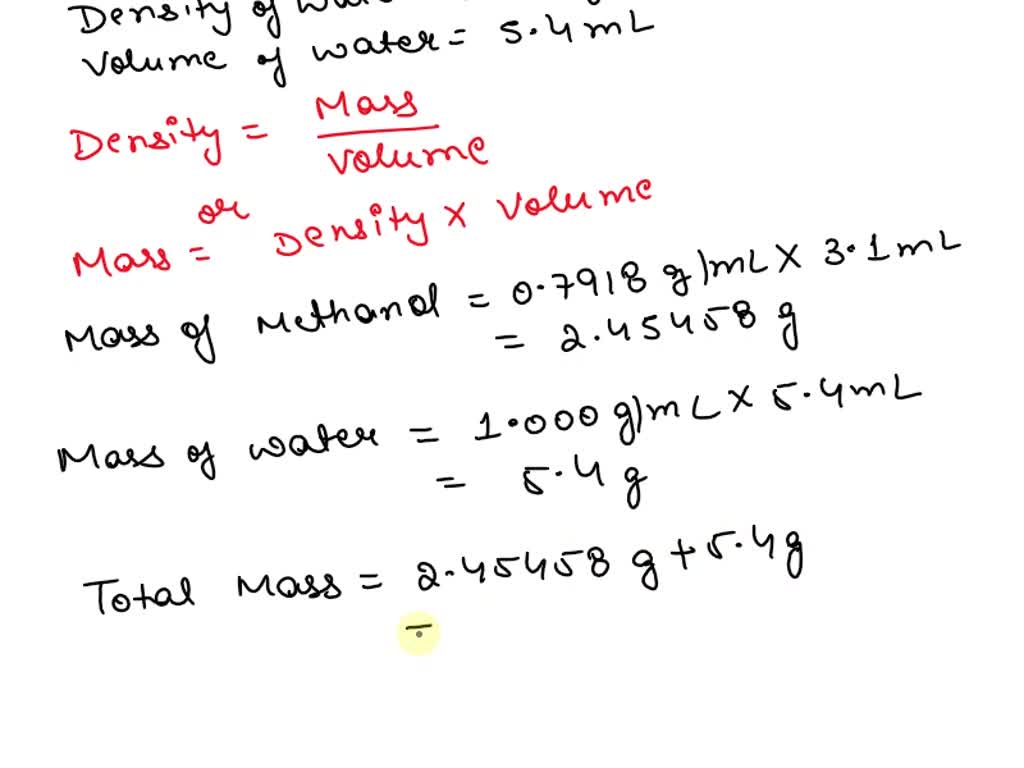 Density of
Volume of water = 5.4 mL
Density = Mass / Volume
or
Mass = Density × Volume
Mass of Methanol = 0.7918 g/mL × 3.1 mL
= 2.45458 g
Mass of water = 1.000 g/mL × 5.4 mL
= 5.4 g
Total Mass = 2.45458 g + 5.4 g